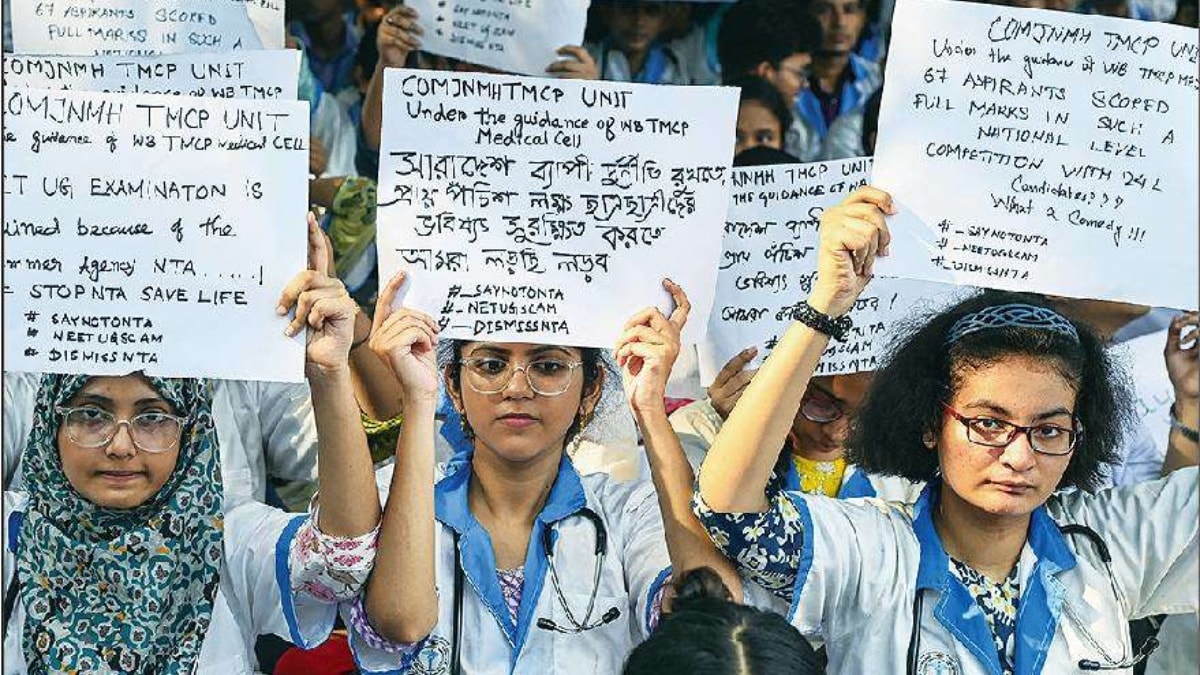 67 ASPIRANTS SCORED
FULL MARKS IN SUCH A
NATIONAL
COMJNMH TMCP UNIT
guidance of WB TMCP
OMJNMH TMCP UNIT
e guidance of WB TMCP Medical CELL
ET UG EXAMINATON IS
uined because of the
mmer Agency NTA......!
STOP NTA SAVE LIFE
# SAYNOTONTA
# NEETUGSCAM
# DISMISSNTA
# SAYNOTONTA
# NEETUGSCAM
# DISMISSNTA
COMJNMHTMCP UNIT
Under the guidance of WB TMCP
Medical Cell
সারাদেশ ব্যাপী দুর্নীতি রুখতে
প্রায় পঁচিশ লক্ষ ছাত্রছাত্রীদের
ভবিষ্যৎ সুরক্ষিত করতে
আমরা লড়ছি লড়ব
#_SAYNOTONTA
#_NETUGSCAM
#_DISMISSNTA
JNMH TMCP UNIT
THE GUIDANCE OF
প্রায় পঁচি
ভবিষ্যৎ
আমরা
COMJNMH TMCP UNI
Under the guidance of WB TMCP ME
67 ASPIRANTS SCORED
FULL MARKS IN SUCH A
NATIONAL LEVEL
COMPETITION WITH 24 L
Candidates???
What a Comedy!!!
#_SAYNOTONTA
#_NEETUGSCAM
#_DISMISSNTA